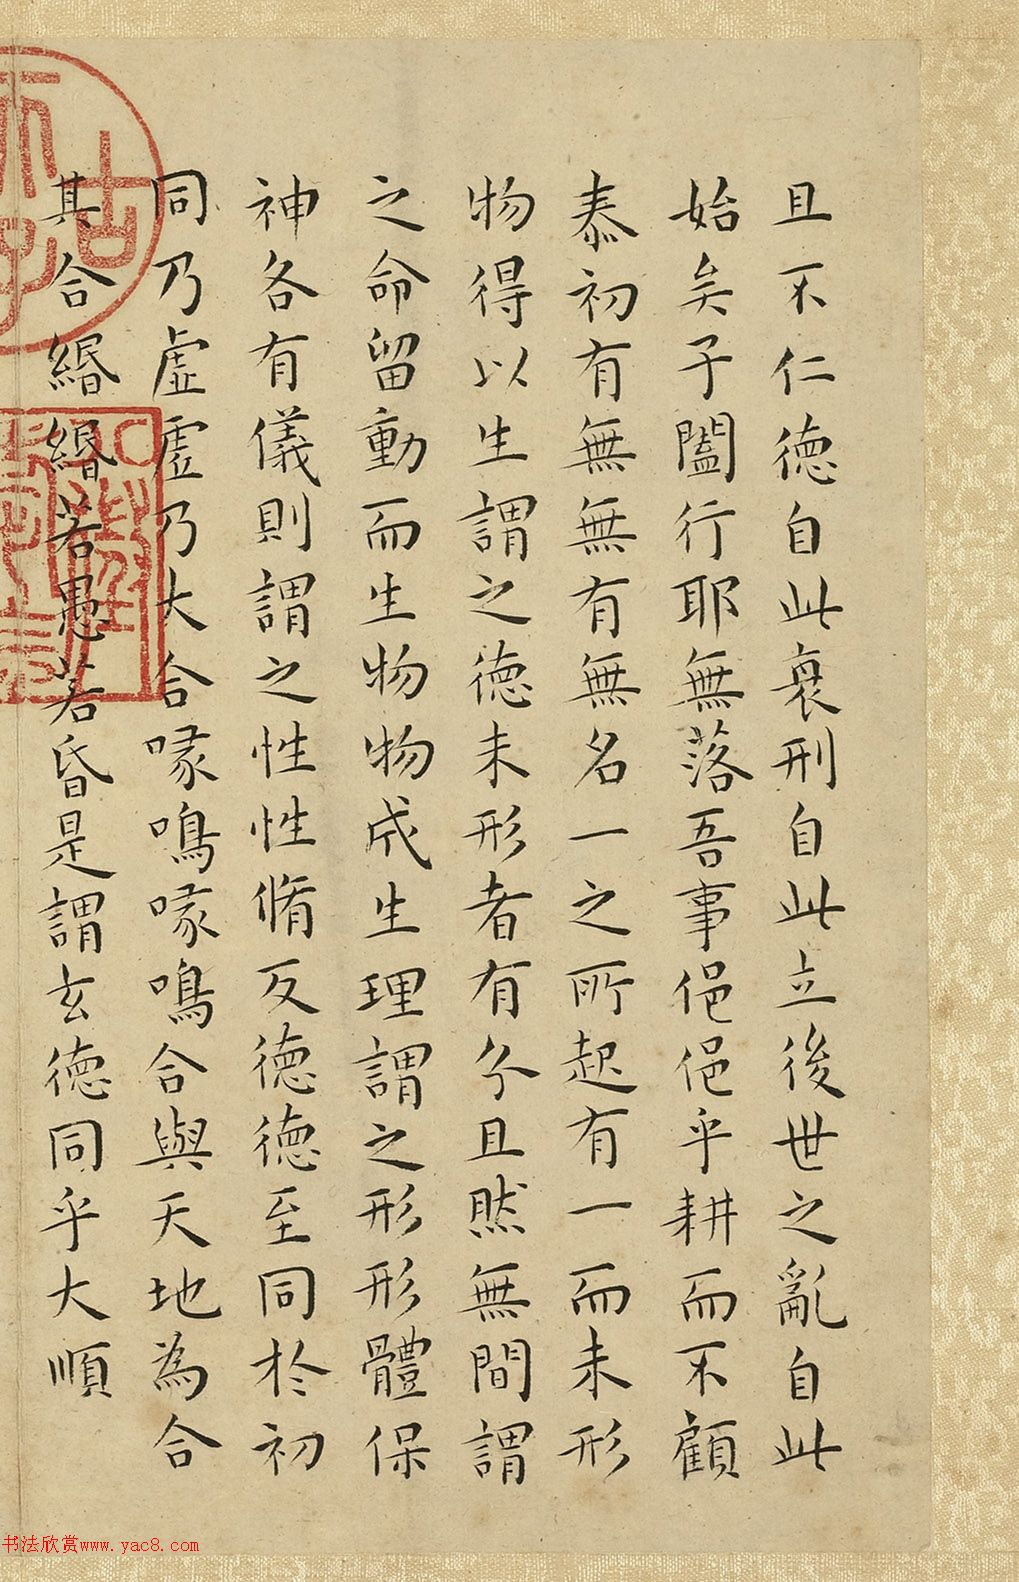 且不仁德自此衰刑自此立後世之亂自此
始矣子闔行耶無落吾事俋俋乎耕而不顧
泰初有無無有無名一之所起有一而未形
物得以生謂之德未形者有分且然無間謂
之命留動而生物物成生理謂之形形體保
神各有儀則謂之性性脩反德德至同於初
同乃虛虛乃大合喙鳴喙鳴合與天地為合
其合緡緡若愚若昏是謂玄德同乎大順
书法欣赏www.yac8.com